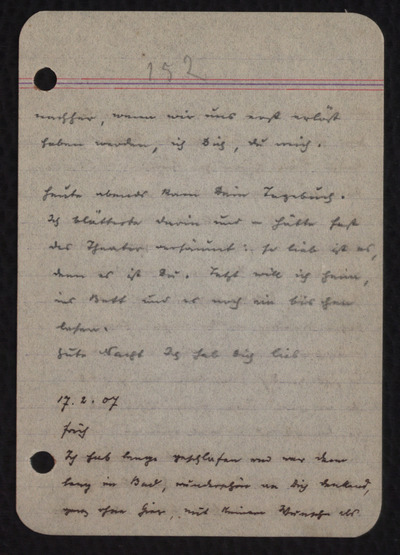 152
nachher, wenn wir uns erst erlöst
haben werden, ich Dich, Du mich.
Heute abends kam Dein Tagebuch.
Ich blätterte darin und – hätte fast
das Theater versäumt: so lieb ist es,
denn es ist Du. Jetzt will ich heim,
ins Bett und es noch ein bischen
lesen.
Gute Nacht Ich hab Dich lieb
17.2.07
früh
Ich hab lange geschlafen und war dann
lang im Bad, wunderschön an Dich denkend,
ganz ohne Gier, mit keinem Wunsche als